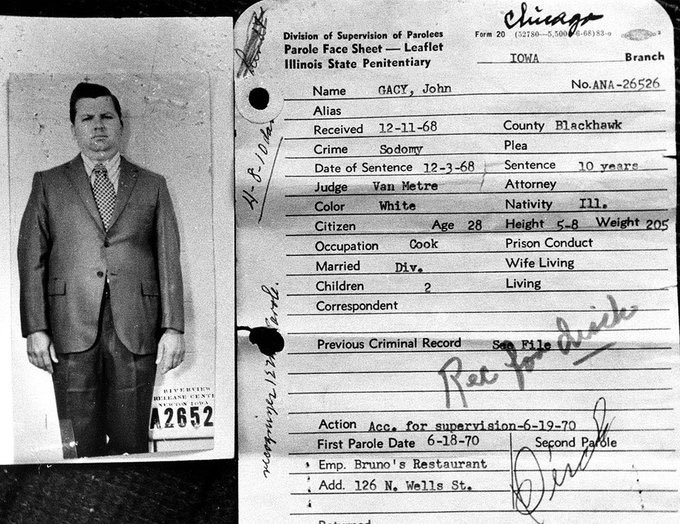 Chicago
Division of Supervision of Parolees
Form 20 (52780—5,500
6-68)83-
Parole Face Sheet — Leaflet
IOWA Branch
Illinois State Penitentiary
Name GACY, John No. ANA-26526
Alias
Received 12-11-68 County Blackhawk
Crime Sodomy Plea
Date of Sentence 12-3-68 Sentence 10 years
Judge Van Metre Attorney
Color White Nativity Ill.
Citizen Age 28 Height 5-8 Weight 205
Occupation Cook Prison Conduct
Married Div. Wife Living
Children 2 Living
Correspondent
Previous Criminal Record See File
Rec for
Action Acc. for supervision-6-19-70
First Parole Date 6-18-70 Second Parole
Emp. Bruno's Restaurant
Add. 126 N. Wells St.
Parole.
RIVERVIEW
RELEASE CENT
NEWTON IOWA
A2652